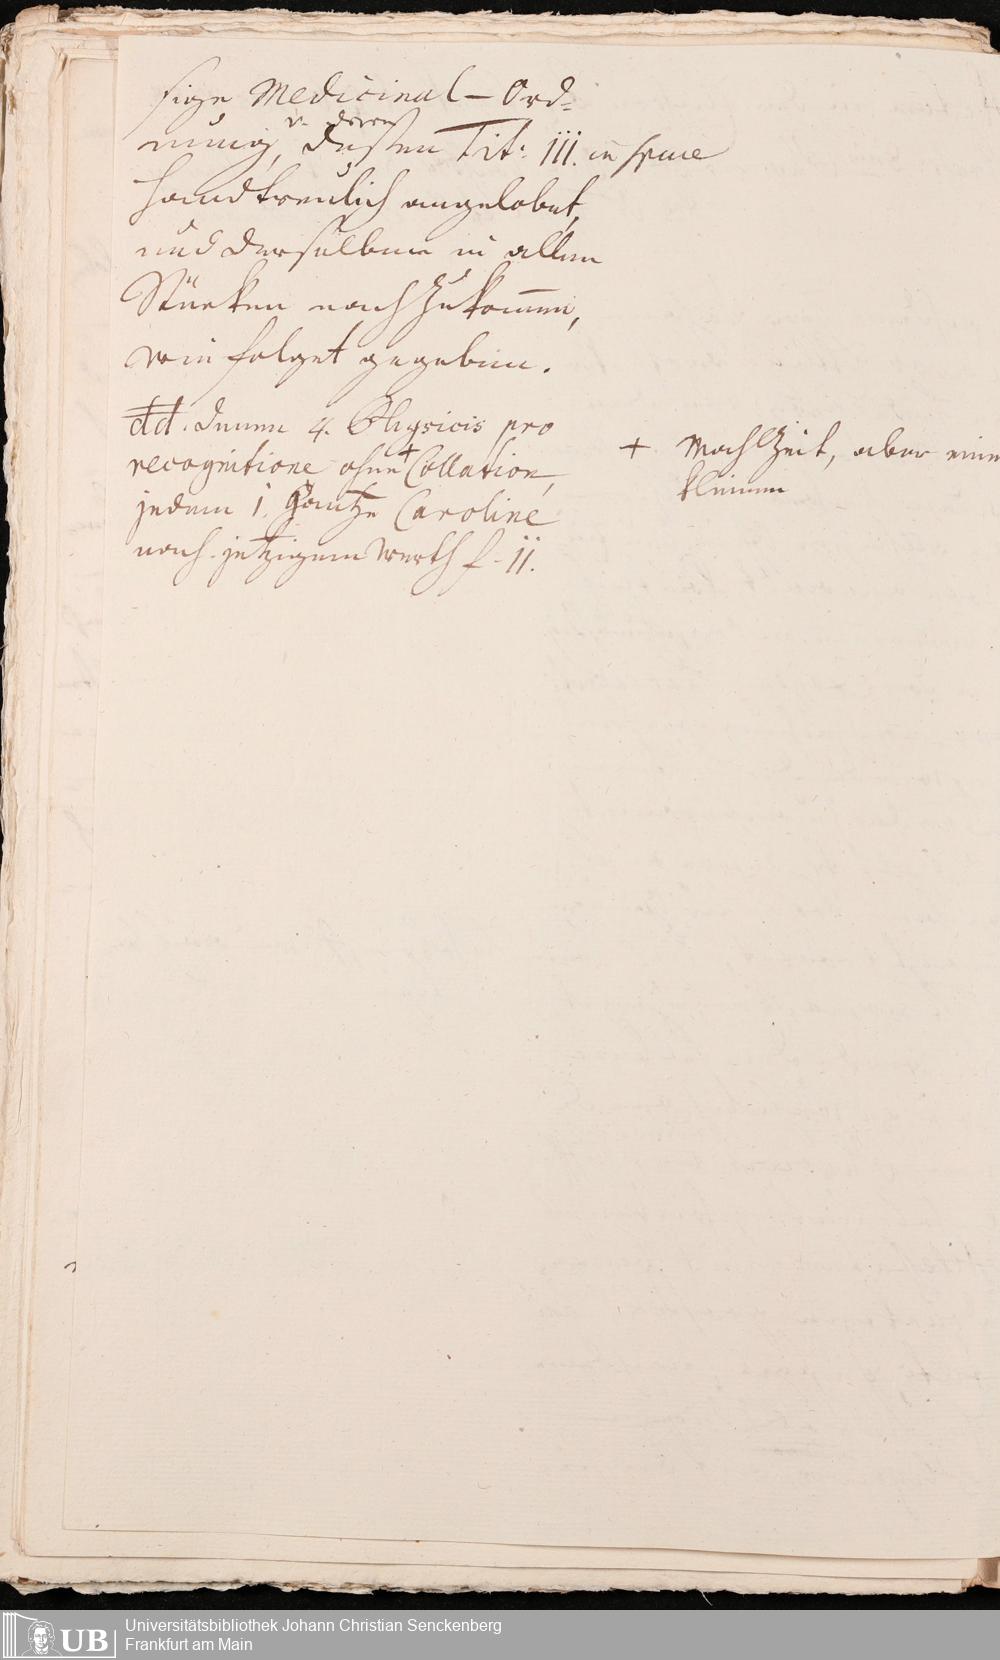 sige Medicinal-Ord=
nung, u. deren deßen Tit: III. in specie
handtreulich angelobet,
und derselben in allen
Stücken nach Zukommen,
wie folget gegeben.
dd. denen 4. Physicis pro
recognitione ohne + Collation,
jedem 1. gantze Caroline
nach jetzigem Werth f. 11.
+ MahlZeit, aber eine
kleinen
UB Universitätsbibliothek Johann Christian Senckenberg
Frankfurt am Main